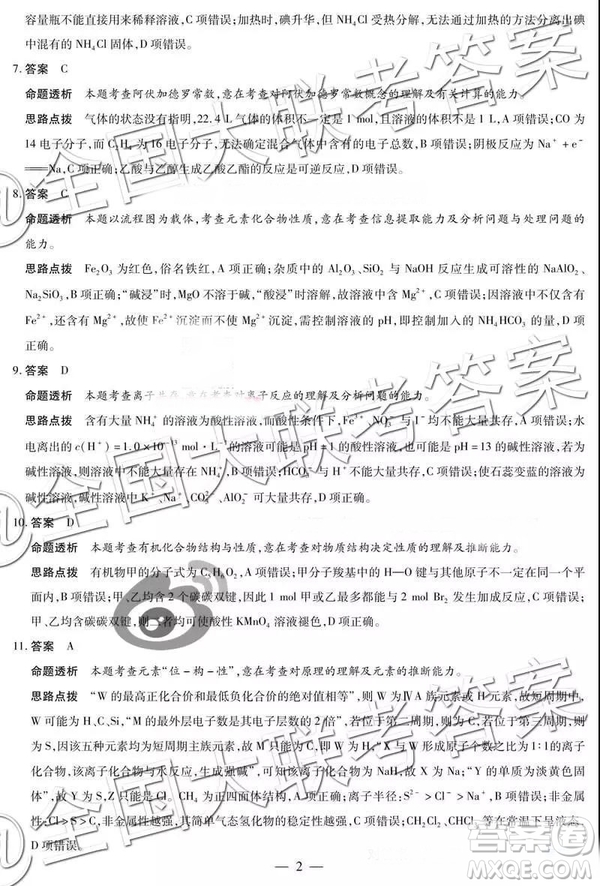 容量瓶不能直接用来稀释溶液,C项错误;加热时,碘升华,但NH₄Cl受热分解,无法用加热的方法分离出碘
中混有的NH₄Cl固体,D项错误。
7. 答案 C
命题透析 本题考查阿伏加德罗常数,意在考查对阿伏加德罗常数概念的理解及有关计算的能力。
思路点拨 气体的状态没有指明,22.4 L气体的体积不一定是1 mol,且溶液的体积不是1 L,A项错误;CO为
14电子分子,而C₂H₄为16电子分子,无法确定混合气体中含有的电子总数,B项错误;阴极反应为Na⁺+e⁻
═Na,C项正确;乙酸与乙醇生成乙酸乙酯的反应是可逆反应,D项错误。
8. 答案 C
命题透析 本题以流程图为载体,考查元素化合物性质,意在考查信息提取能力及分析问题与处理问题的
能力。
思路点拨 Fe₂O₃为红棕,俗名铁红,A项正确;杂质中的Al₂O₃、SiO₂与NaOH反应生成可溶性的NaAlO₂、
Na₂SiO₃,B项正确;“碱浸”时,MgO不溶于碱,“酸浸”时溶解,故溶液中含Mg²⁺,C项错误;因溶液中不仅含有
Fe²⁺,还含有Mg²⁺,故使Fe²⁺沉淀而不使Mg²⁺沉淀,需控制溶液的pH,即控制加入的NH₄HCO₃的量,D项
正确。
9. 答案 D
命题透析 本题考查离子共存,意在考查对离子反应的理解及分析问题的能力。
思路点拨 含有大量NH₄⁺的溶液为酸性溶液,而酸性条件下,Fe³⁺、NO₃⁻与I⁻均不能大量共存,A项错误;水
电离出的c(H⁺)=1.0×10⁻¹³ mol·L⁻¹的溶液可能是pH=1的酸性溶液,也可能是pH=13的碱性溶液,若为
碱性溶液,则溶液中不能大量存在B项错误;HCO₃⁻与H⁺不能大量共存,C项错误;使石蕊变蓝的溶液为
碱性溶液,碱性溶液中K⁺、Na⁺、CO₃²⁻、AlO₂⁻可大量共存,D项正确。
10. 答案 D
命题透析 本题考查有机化合物结构与性质,意在考查对物质结构决定性质的理解及推断能力。
思路点拨 有机物甲的分子式为O₂,A项错误;甲分子羧基中的H—O键与乙分子中的
B项错误;甲、乙均含2个碳碳双键,因此1 mol甲或乙最多都能与2 mol Br₂发生加成反应,C项错误;甲、
乙均含碳碳双键,都可使酸性KMnO₄溶液褪色,D项正确。
11. 答案 A
命题透析 本题考查元素“位-构-性”,意在考查对原理的理解及元素的推断能力。
思路点拨 “W的最高正化合价和最低负化合价的绝对值相等”,则W为ⅣA族元素或H元素,W可能
为H、C、Si,“M的最外层电子数是其电子层数的2倍”,若位于第二周期,则为C,若位于第三周期,则
为S,因该五种元素均为短周期主族元素,故M只能为S,即W为
化合物,该离子化合物与水反应,生成强碱”,可知该离子化合物为NaH,故X为Na。因“Y的单质为淡黄色固
体”,故Y为S,Z只能为Cl。CH₄为正四面体结构,A项正确;半径:S²⁻>Cl⁻>Na⁺>H⁺,B项错误;非金属
性:Cl>S>C,非金属性越强,其简单气态氢化物的稳定性越强,C项错误;CH₂Cl₂、CHCl₃等在常温下呈液态,
D项错误。
— 2 —
@全国大联考答案
答案圈
MXQE.COM